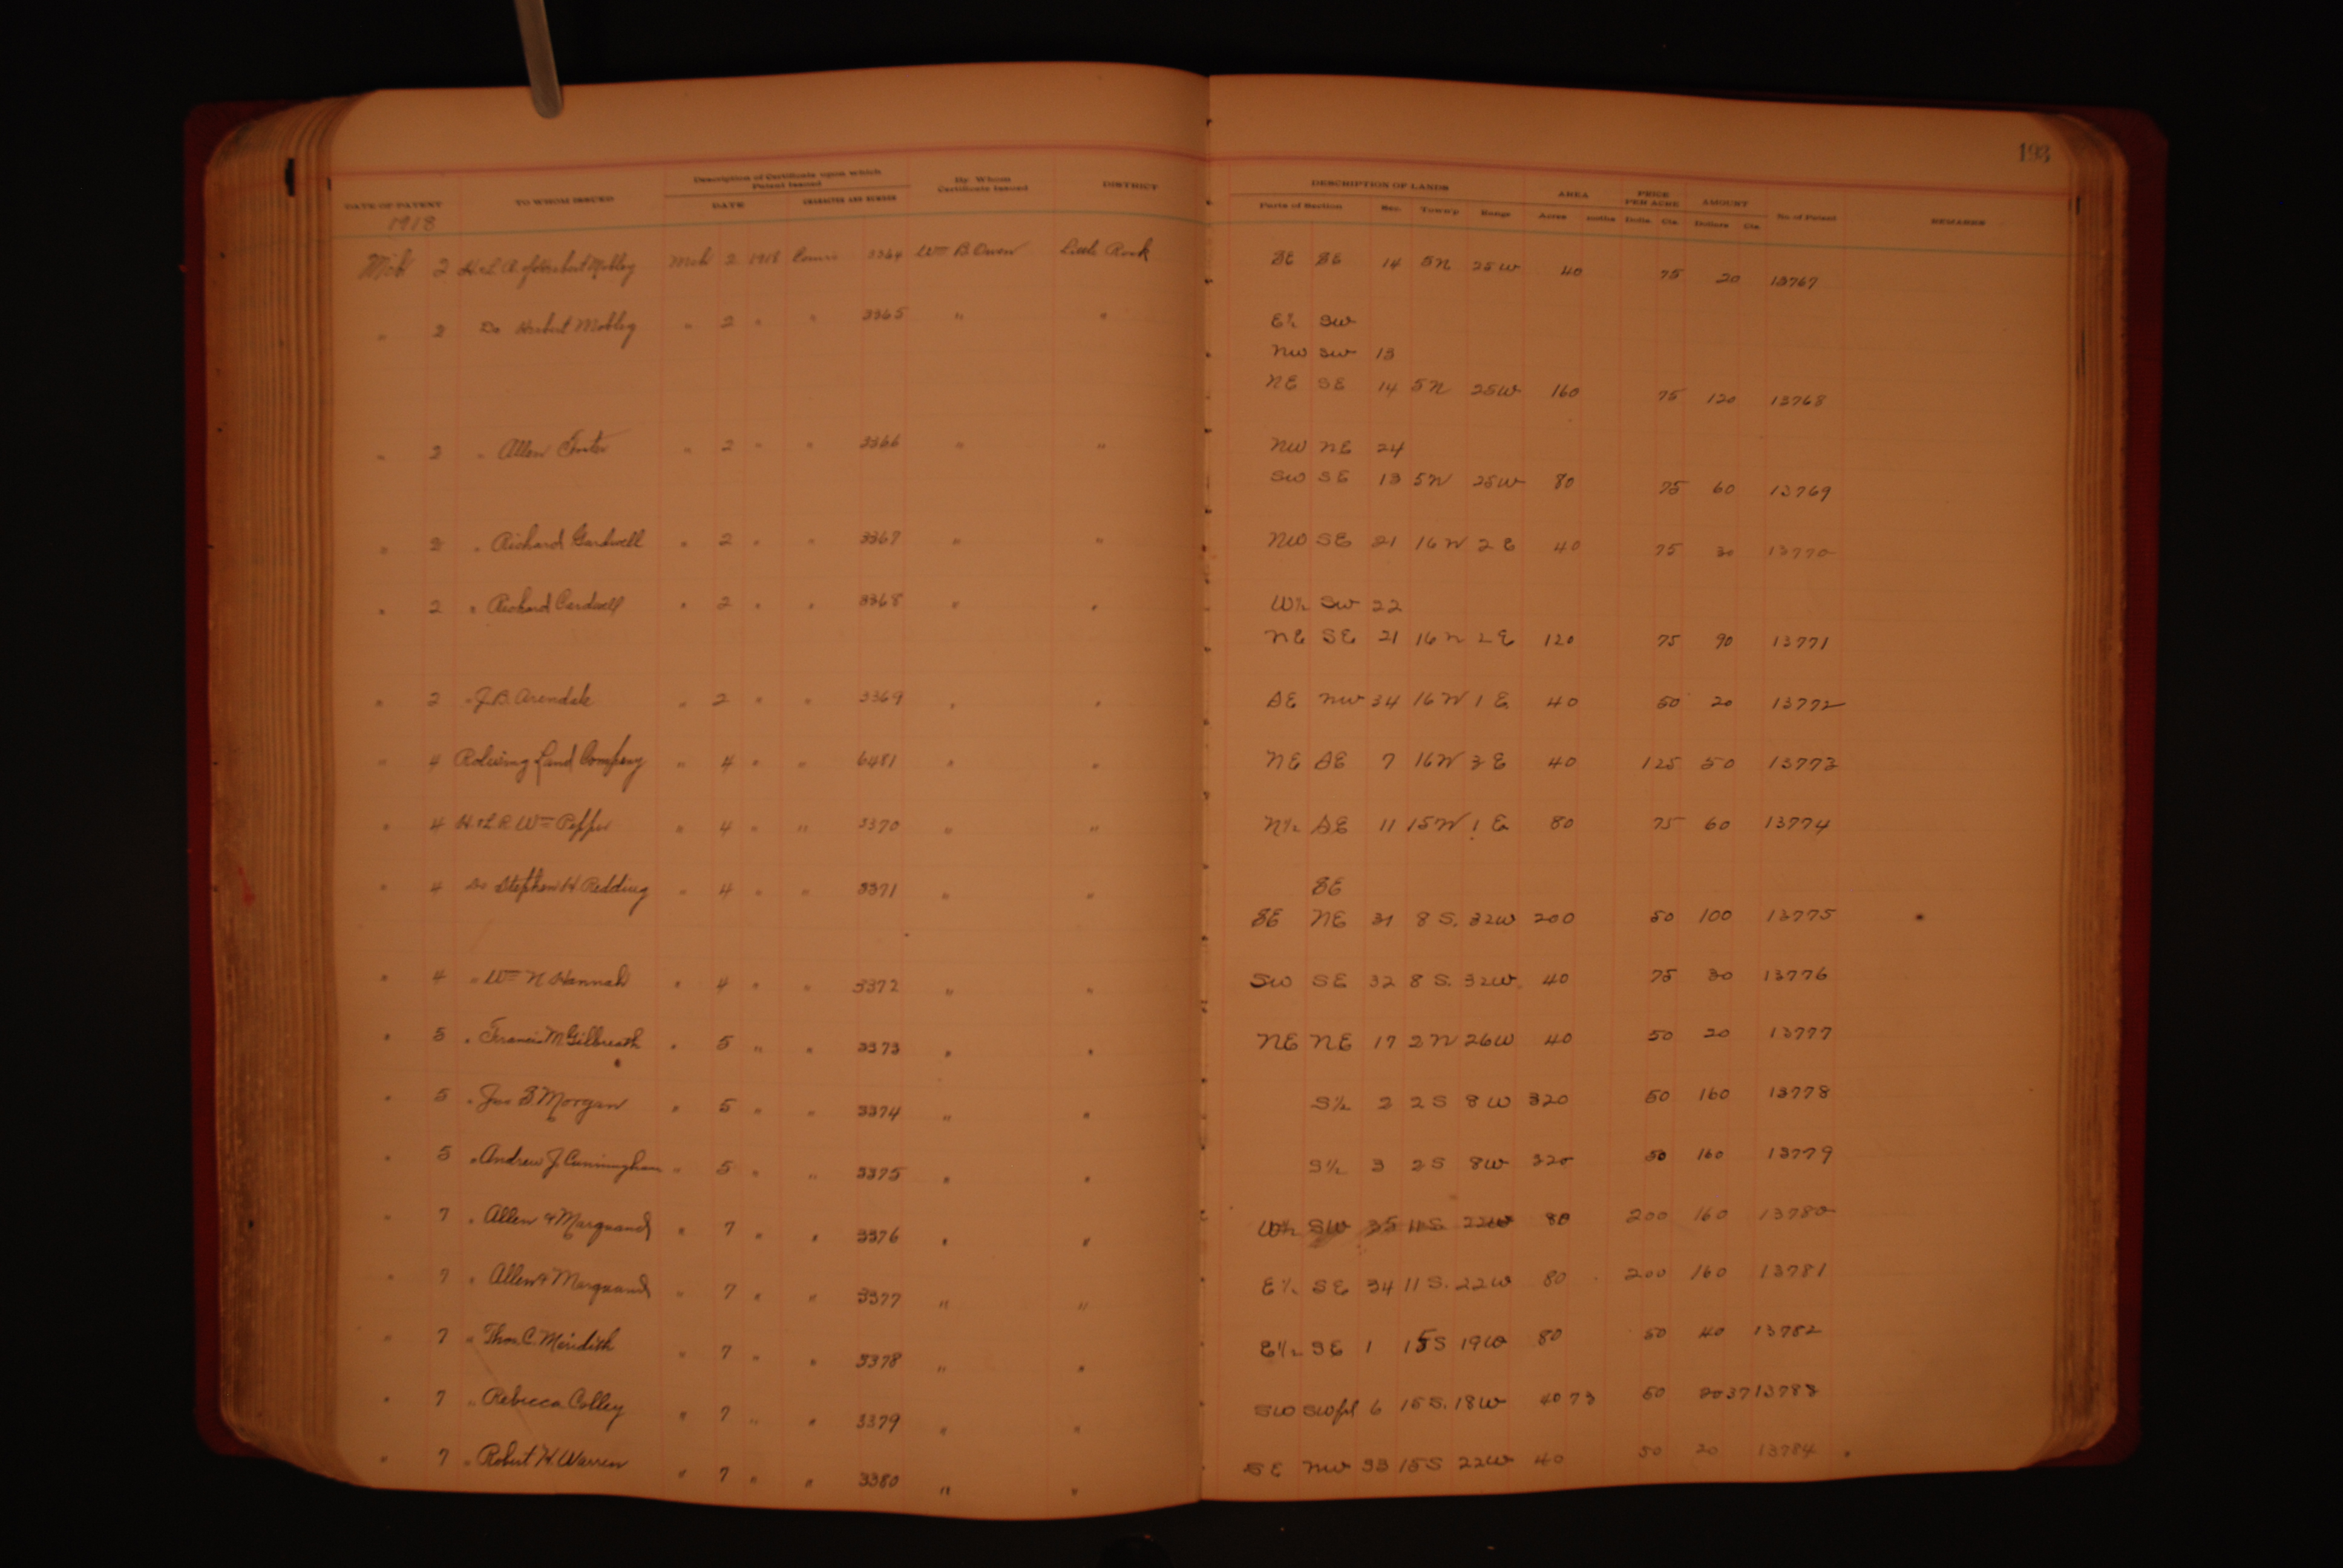 193
Description of Certificate upon which Patent Issued
By Whom Certificate Issued
DISTRICT
DESCRIPTION OF LANDS
AREA
PRICE PER ACRE
AMOUNT
No. of Patent
REMARKS
DATE OF PATENT
TO WHOM ISSUED
DATE
CHARACTER AND NUMBER
Parts of Section Sec. Town'p Range Acres 100ths Dolls. Cts. Dollars Cts.
1918
Mch 2 H&L R. of Herbert Mobley Mch 2 1918 3364 Wm B. Owen Little Rock SE SE 14 5N 25W 40 75 20 13767
" 2 Do Herbert Mobley " 2 " " 3365 " " E½ SW
NW SW 13
NE SE 14 5N 25W 160 75 120 13768
" 2 " Allen " 2 " " 3366 " " NW NE 24
SW SE 13 5N 25W 80 75 60 13769
" 2 " Richard Gardwell " 2 " " 3367 " " NW SE 21 16N 2E 40 75 30 13770
" 2 " Richard Cardwell " 2 " " 3368 " " W½ SW 22
NE SE 21 16N 2E 120 75 90 13771
" 2 " J.B. Arendale " 2 " " 3369 " " SE NW 34 16N 1E 40 50 20 13772
" 4 Land Company " 4 " " 6481 " " NE SE 7 16N 3E 40 125 50 13773
" 4 H.&L R. Wm Pepper " 4 " " 3370 " " N½ SE 11 15N 1E 80 75 60 13774
" 4 Do Stephen H. Redding " 4 " " 3371 " " SE
SE NE 31 8S. 32W 200 50 100 13775
" 4 " Wm N Hannah " 4 " " 3372 " " SW SE 32 8S. 32W. 40 75 30 13776
" 5 " Francis M. Gilbreath " 5 " " 3373 " " NE NE 17 2N 26W 40 50 20 13777
" 5 " Jno B Morgan " 5 " " 3374 " " S½ 2 2S 8W 320 50 160 13778
" 5 " Andrew J. Cunningham " 5 " " 3375 " " S½ 3 2S 8W 320 50 160 13779
" 7 " Allen & Marquand " 7 " " 3376 " " W½ SW 35 11S 22W 80 200 160 13780
" 7 " Allen & Marquand " 7 " " 3377 " " E½ SE 34 11S. 22W 80 200 160 13781
" 7 " Thos. C. Meridith " 7 " " 3378 " " E½ SE 1 15S 19W 80 50 40 13782
" 7 " Rebecca Colley " 7 " " 3379 " " SW SWfrl 6 15S. 18W 40 73 50 20 37 13783
" 7 " Robert H. Warren " 7 " " 3380 " " SE NW 33 15S 22W 40 50 20 13784